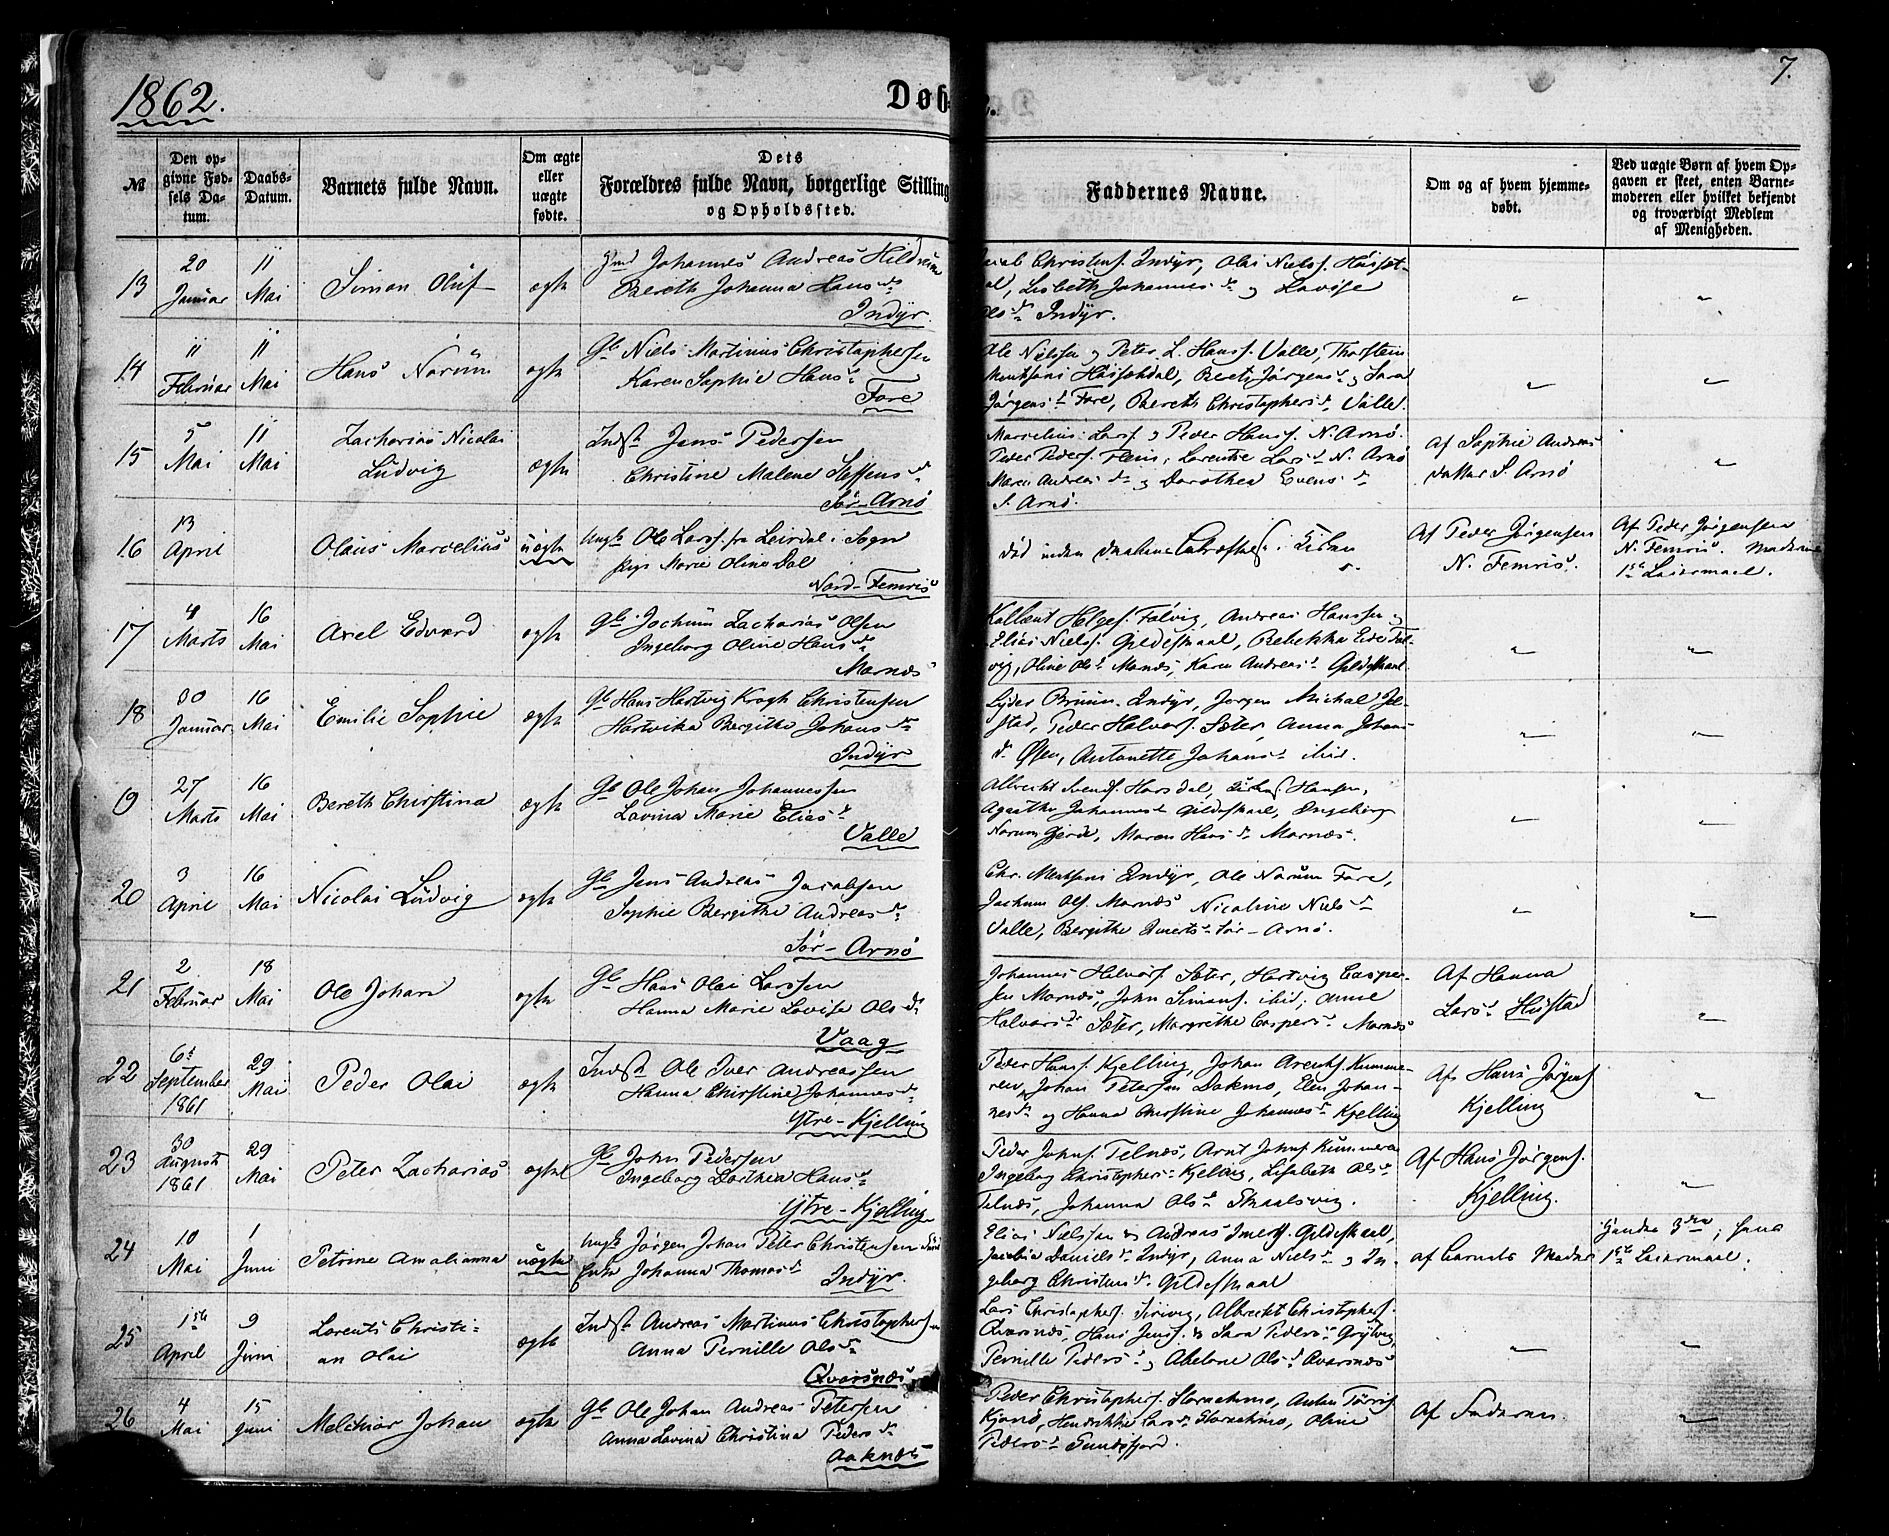 1862.
Døb
7.
№
Den opgivne Fødsels Datum.
Daabs-Datum.
Barnets fulde Navn.
Om ægte eller uægte fødte.
Dets Forældres fulde Navn, borgerlige Stilling og Opholdssted.
Faddernes Navne.
Om og af hvem hjemmedøbt.
Ved uægte Børn af hvem Opgaven er skeet, enten Barnemoderen eller hvilket bekjendt og troværdigt Medlem af Menigheden.
13
20 Januar
11 Mai
Simon Oluf
ægte
Johannes Andreas
Bereth Johanna Hans d.
Indyr.
Christens. Indyr, Olai Niels s.
Lisbeth Johannes d. og Lovise
Indyr.
14
11 Februar
11 Mai
Hans Norum
ægte
Gb Niels Martinus Christophersen
Karen Sophie Hans d.
Fore
Ole Nielsen og Peter L. Hans s. Valle, Thorstein
Jørgens d. Fore, Bereth Christophers d. Valle.
15
5 Mai
11 Mai
Zacharias Nicolai
Ludvig
ægte
Indst Jens Pedersen
Christine Malene Steffens d.
Sør-Arnø
Marselius Lars s. og Peder Hans s. N. Arnø.
Peder Peders. Flein, Lorentse Lars d. N. Arnø
Maren Andreas d. og Dorothea Evens d.
S. Arnø.
Af Sophie Andreas
datter S. Arnø
16
13 April
Olaus Marcelius
uægte
Ungk Ole Lars s. fra Leirdal i Sogn
pige Marie Oline Dal
Nord-Femris
død inden
Af Peder Jørgensen
N. Femris.
Af Peder Jørgensen
N. Femris.
1ste Leiermaal.
17
4 Marts
16 Mai
Axel Edvard
ægte
Gb Jochum Zacharias Olsen
Ingeborg Oline Hans d.
Mornæs
Helges. Falvig, Andreas Hanssen og
Elias Niels s. Gildeskaal, Rebekka
Oline Ols d. Mornæs, Karen Andreas d. Gildeskaal
18
30 Januar
16 Mai
Emilie Sophie
ægte
Gb Hans Hartvig Krogh Christensen
Hartvika Bergitte Johans d.
Indyr
Lyder Bruun Indyr, Jørgen Michal
Peder Halvors. Sæter, Anna Johans
d. Øien, Antonette Johans d. ibid.
19
27 Marts
16 Mai
Bereth Christina
ægte
Gb Ole Johan Johannessen
Lovina Marie Elias d.
Valle
Albrecht Svends. Horsdal, Hansen,
Agathe Johannes d. Gildeskaal, Ingeborg
Norum Gjerde, Maren Hans d. Mornæs.
20
3 April
16 Mai
Nicolai Ludvig
ægte
Gb Jens Andreas Jacobsen
Sophie Bergithe Andreas d.
Sør-Arnø
Chr. Mentsoni Indyr, Ole Norum Fore,
Jochum Ols. Mornæs Nicoline Niels d.
Valle, Bergithe Sør-Arnø.
21
2 Februar
18 Mai
Ole Johan
ægte
Gb Hans Olai Larssen
Hanna Marie Lovise Ols d.
Vaag
Johannes Halvors. Sæter, Hartvig Casper-
sen Mornæs, John Simons. ibid; Anne
Halvors d. Sæter, Margrethe Caspers d. Mornæs
Af Hanna
Lars d. Hustad
22
6te September 1861
29 Mai
Peder Olai
ægte
Indst Ole Iver Andreassen
Hanna Christine Johannes d.
Ytre-Kjelling
Peder Hans s. Kjelling, Johan Arents. Kummeren
Johan Petersen Dokmo, Elen Johan-
nes d. og Hanna Christine Johannes d. Kjelling
Af Hans Jørgens
Kjelling
23
30 August 1861
29 Mai
Peter Zacharias
ægte
Gb John Pedersen
Ingeborg Dorthea Hans d.
Ytre-Kjelling
Peder Johns. Telnæs, Arnt Johns Kummeren
Ingeborg Christophers d. Kjelling, Lisabeth Ols d.
Telnæs, Johanna Ols d. Skaalsvig.
Af Hans Jørgens.
Kjelling.
24
10 Mai
1 Juni
Petrine Amalianna
uægte
Ungk Jørgen Johan Peter Christensen
Enke Johanna Thomas d. Indyr.
Elias Nielssen og Andreas Gildeskaal,
Jacobia Daniels d. Indyr, Anna Niels d. og In-
geborg Christens d. Gildeskaal
af Barnets Moder
hendes 3die; hans
1ste Leiermaal.
25
1ste April
9 Juni
Lorents Christi-
an Olai
ægte
Indst Andreas Martinus Christophersen
Anna Pernille Ols d.
Qvarsnæs
Lars Christophers. Albrecht Christophers.
Qvarsnæs, Hans Jens s. og Sara Peders d.
Pernille Peders d. og Abelone Ols d. Qvarsnæs
26
4 Mai
15 Juni
Melchior Johan
ægte
Gb Ole Johan Andreas Petersen
Anna Lovina Christina Peders d.
Aaknæs
Peder Christophers. Storachmo, Anton
Hendrikke Lars d. Storachmo, Oline
Peders d. Sundsfjord.
Af Faderen